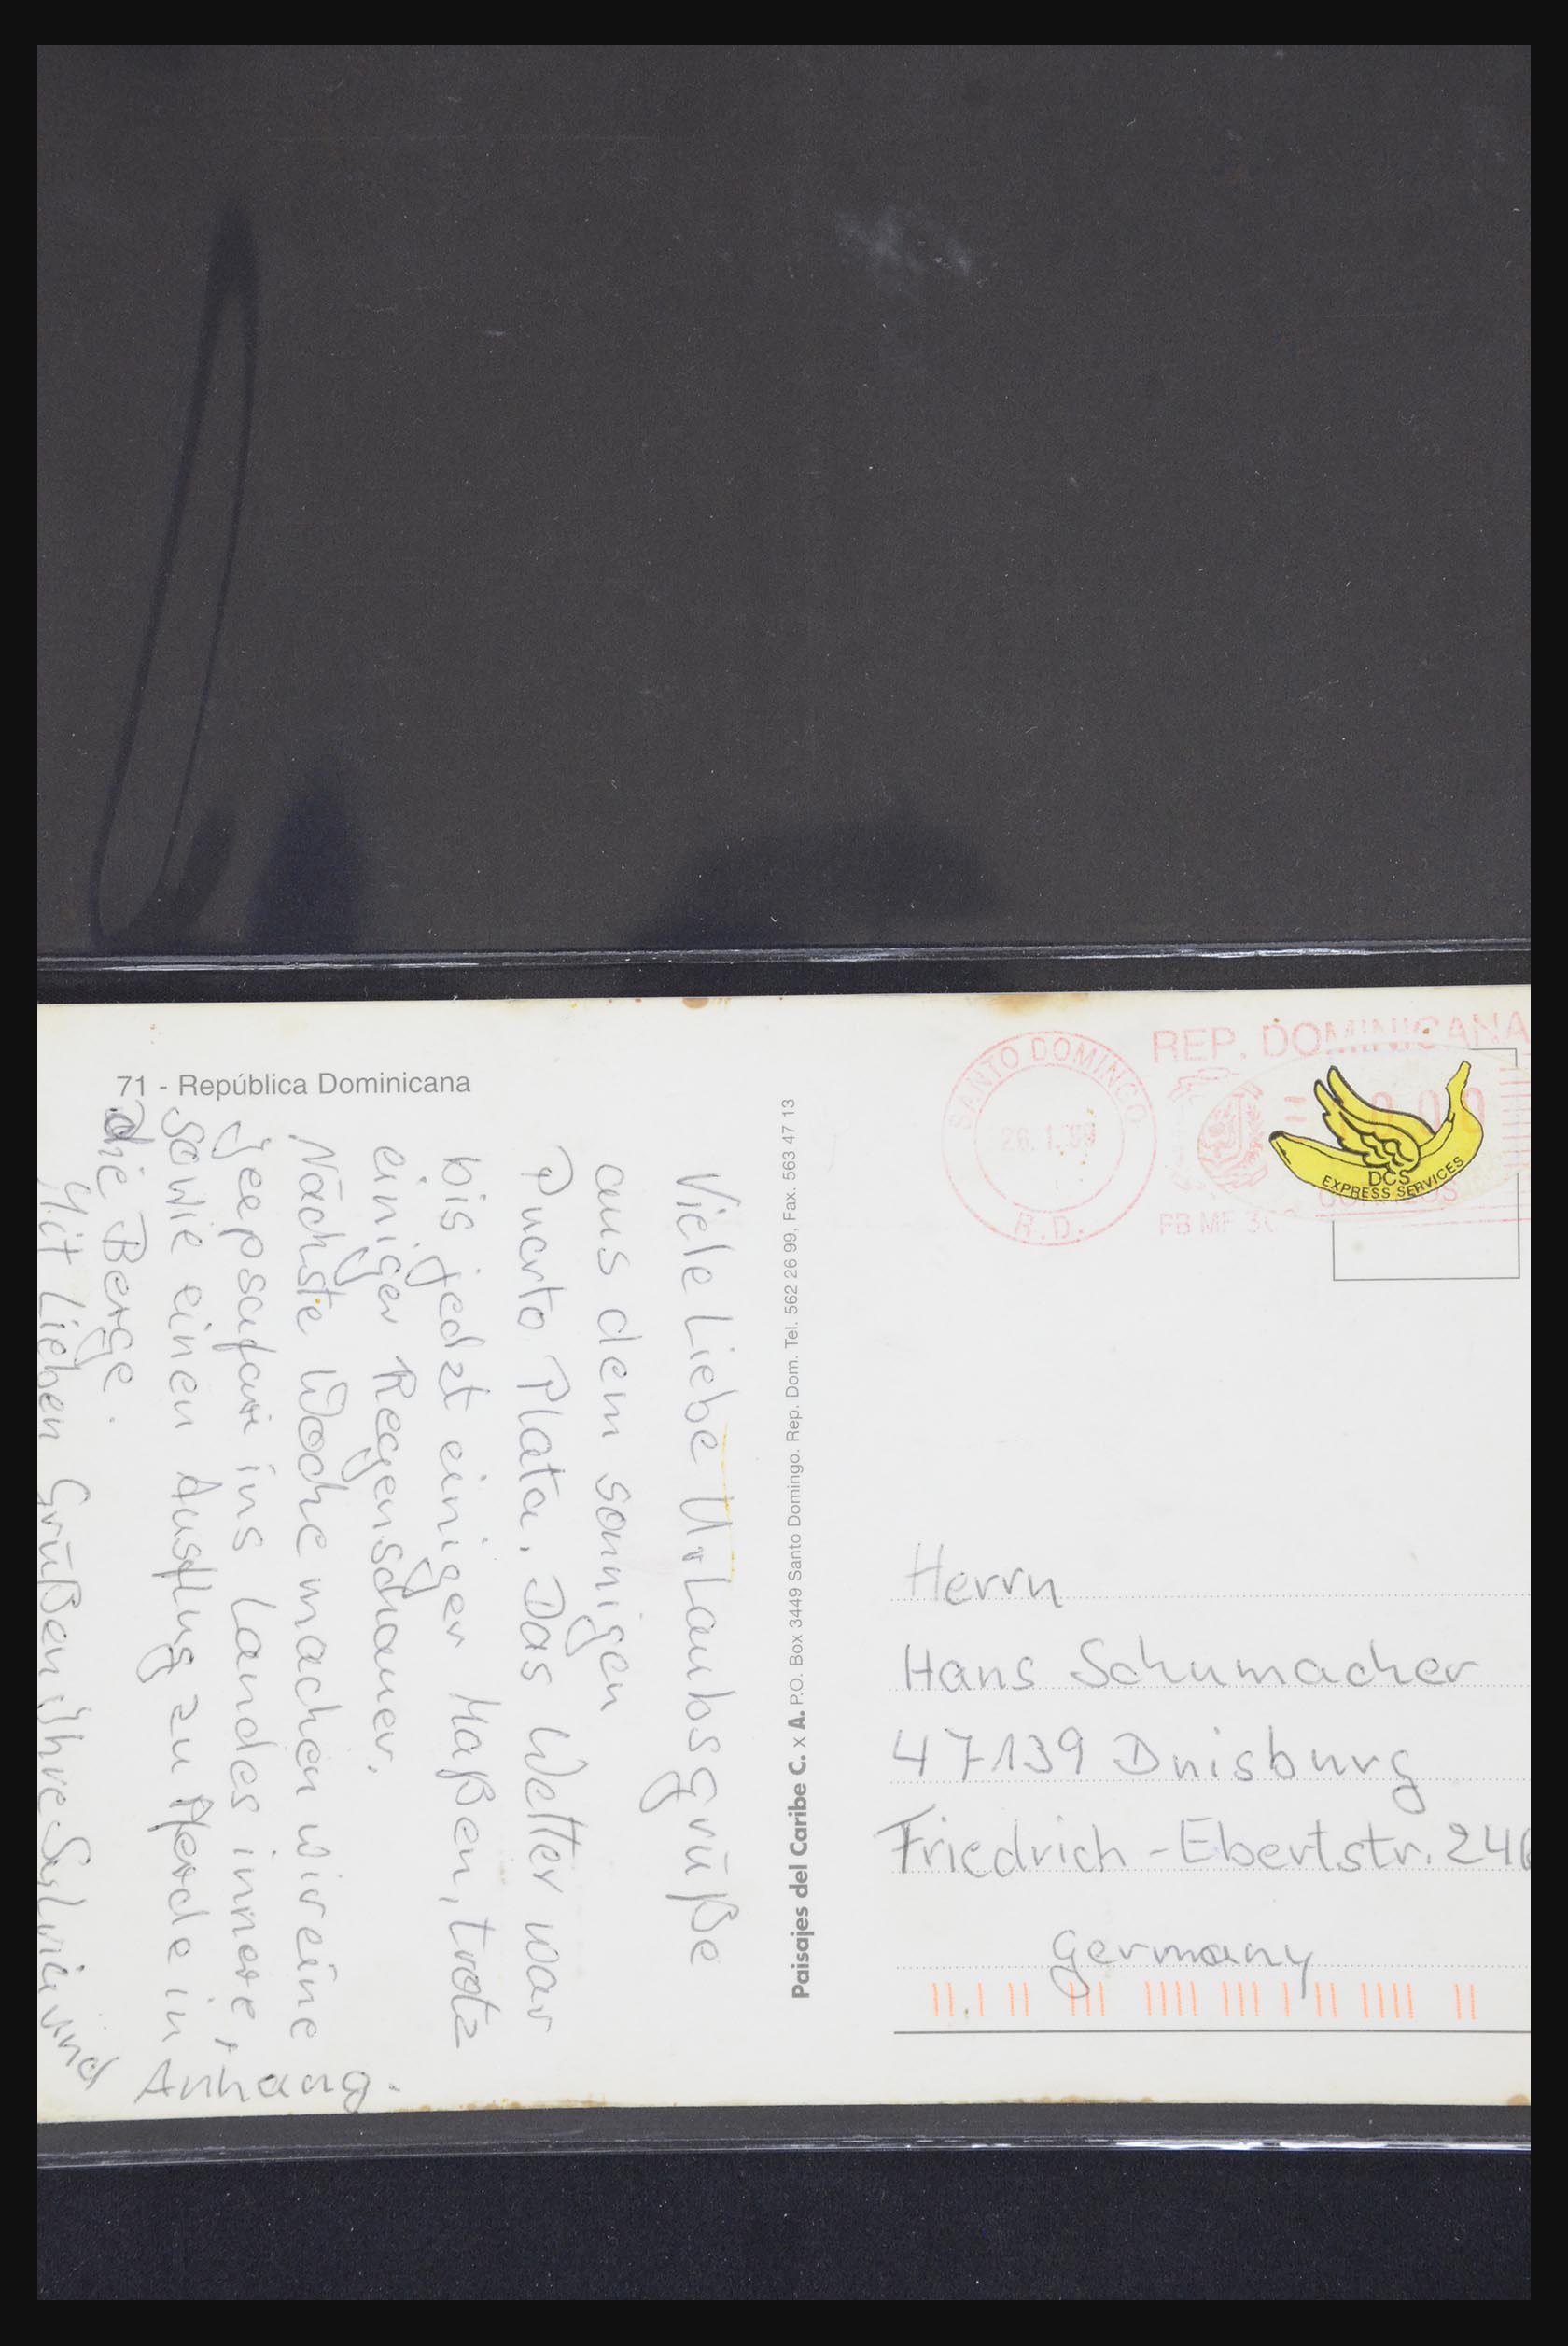 71 - República Dominicana
Viele Liebe Urlaubsgrüße
aus dem sonnigen
Puerto Plata. Das Wetter war
bis jedzt einiger Maßen, trotz
einiger Regenschauer.
Nächste Woche machen wir eine
Jeepsafari ins Landes innere,
sowie einen Ausflug zu Pferde in
die Berge.
Mit Lieben Grüßen ihre Sylvia und
Anhang.
Paisajes del Caribe C. x A. P.O. Box 3449 Santo Domingo. Rep. Dom. Tel. 562 26 99, Fax. 563 47 13
SANTO DOMINGO
R.D.
REP. DOMINICANA
PB MF
CORREOS
DCS
EXPRESS SERVICES
Herrn
Hans Schumacher
47139 Duisburg
Friedrich-Ebertstr. 246
Germany